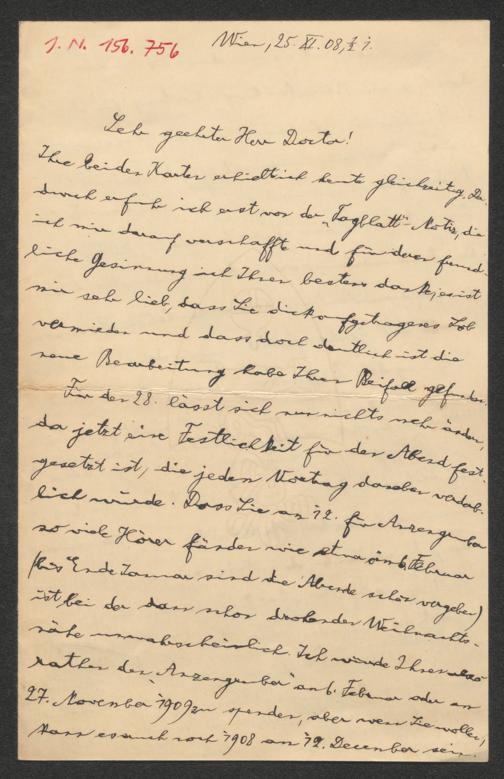 J. N. 156.756
Wien, 25. XI. 08,
Sehr geehrter Herr Doctor!
Ihre beiden Karten erhielt ich heute gleichzeitig. Da-
durch erfuhr ich erst von der „Tagblatt"-Notiz, die
ich mir darauf verschaffte und für deren freund-
liche Gesinnung ich Ihnen bestens danke; es ist
mir sehr lieb, dass Sie dick aufgetragenes Lob
vermieden und dass doch deutlich ist die
neue Bearbeitung habe Ihren Beifall gefunden.
Für den 28. lässt sich nun nichts mehr ändern,
da jetzt eine Festlichkeit für den Abend fest-
gesetzt ist, die jeden Vortrag daneben verderb-
lich würde. Dass Sie am 12. für Anzengruber
so viele Hörer fänden wie etwa am 6. Februar
(bis Ende Januar sind die Abende schon vergeben)
ist bei der dann schon drohenden Weihnachts-
nähe unwahrscheinlich. Ich würde Ihnen also
rathen den „Anzengruber" am 6. Februar oder am
27. November 1909 zu spenden, aber wenn Sie wollen,
kann es auch noch 1908 am 12. December sein.